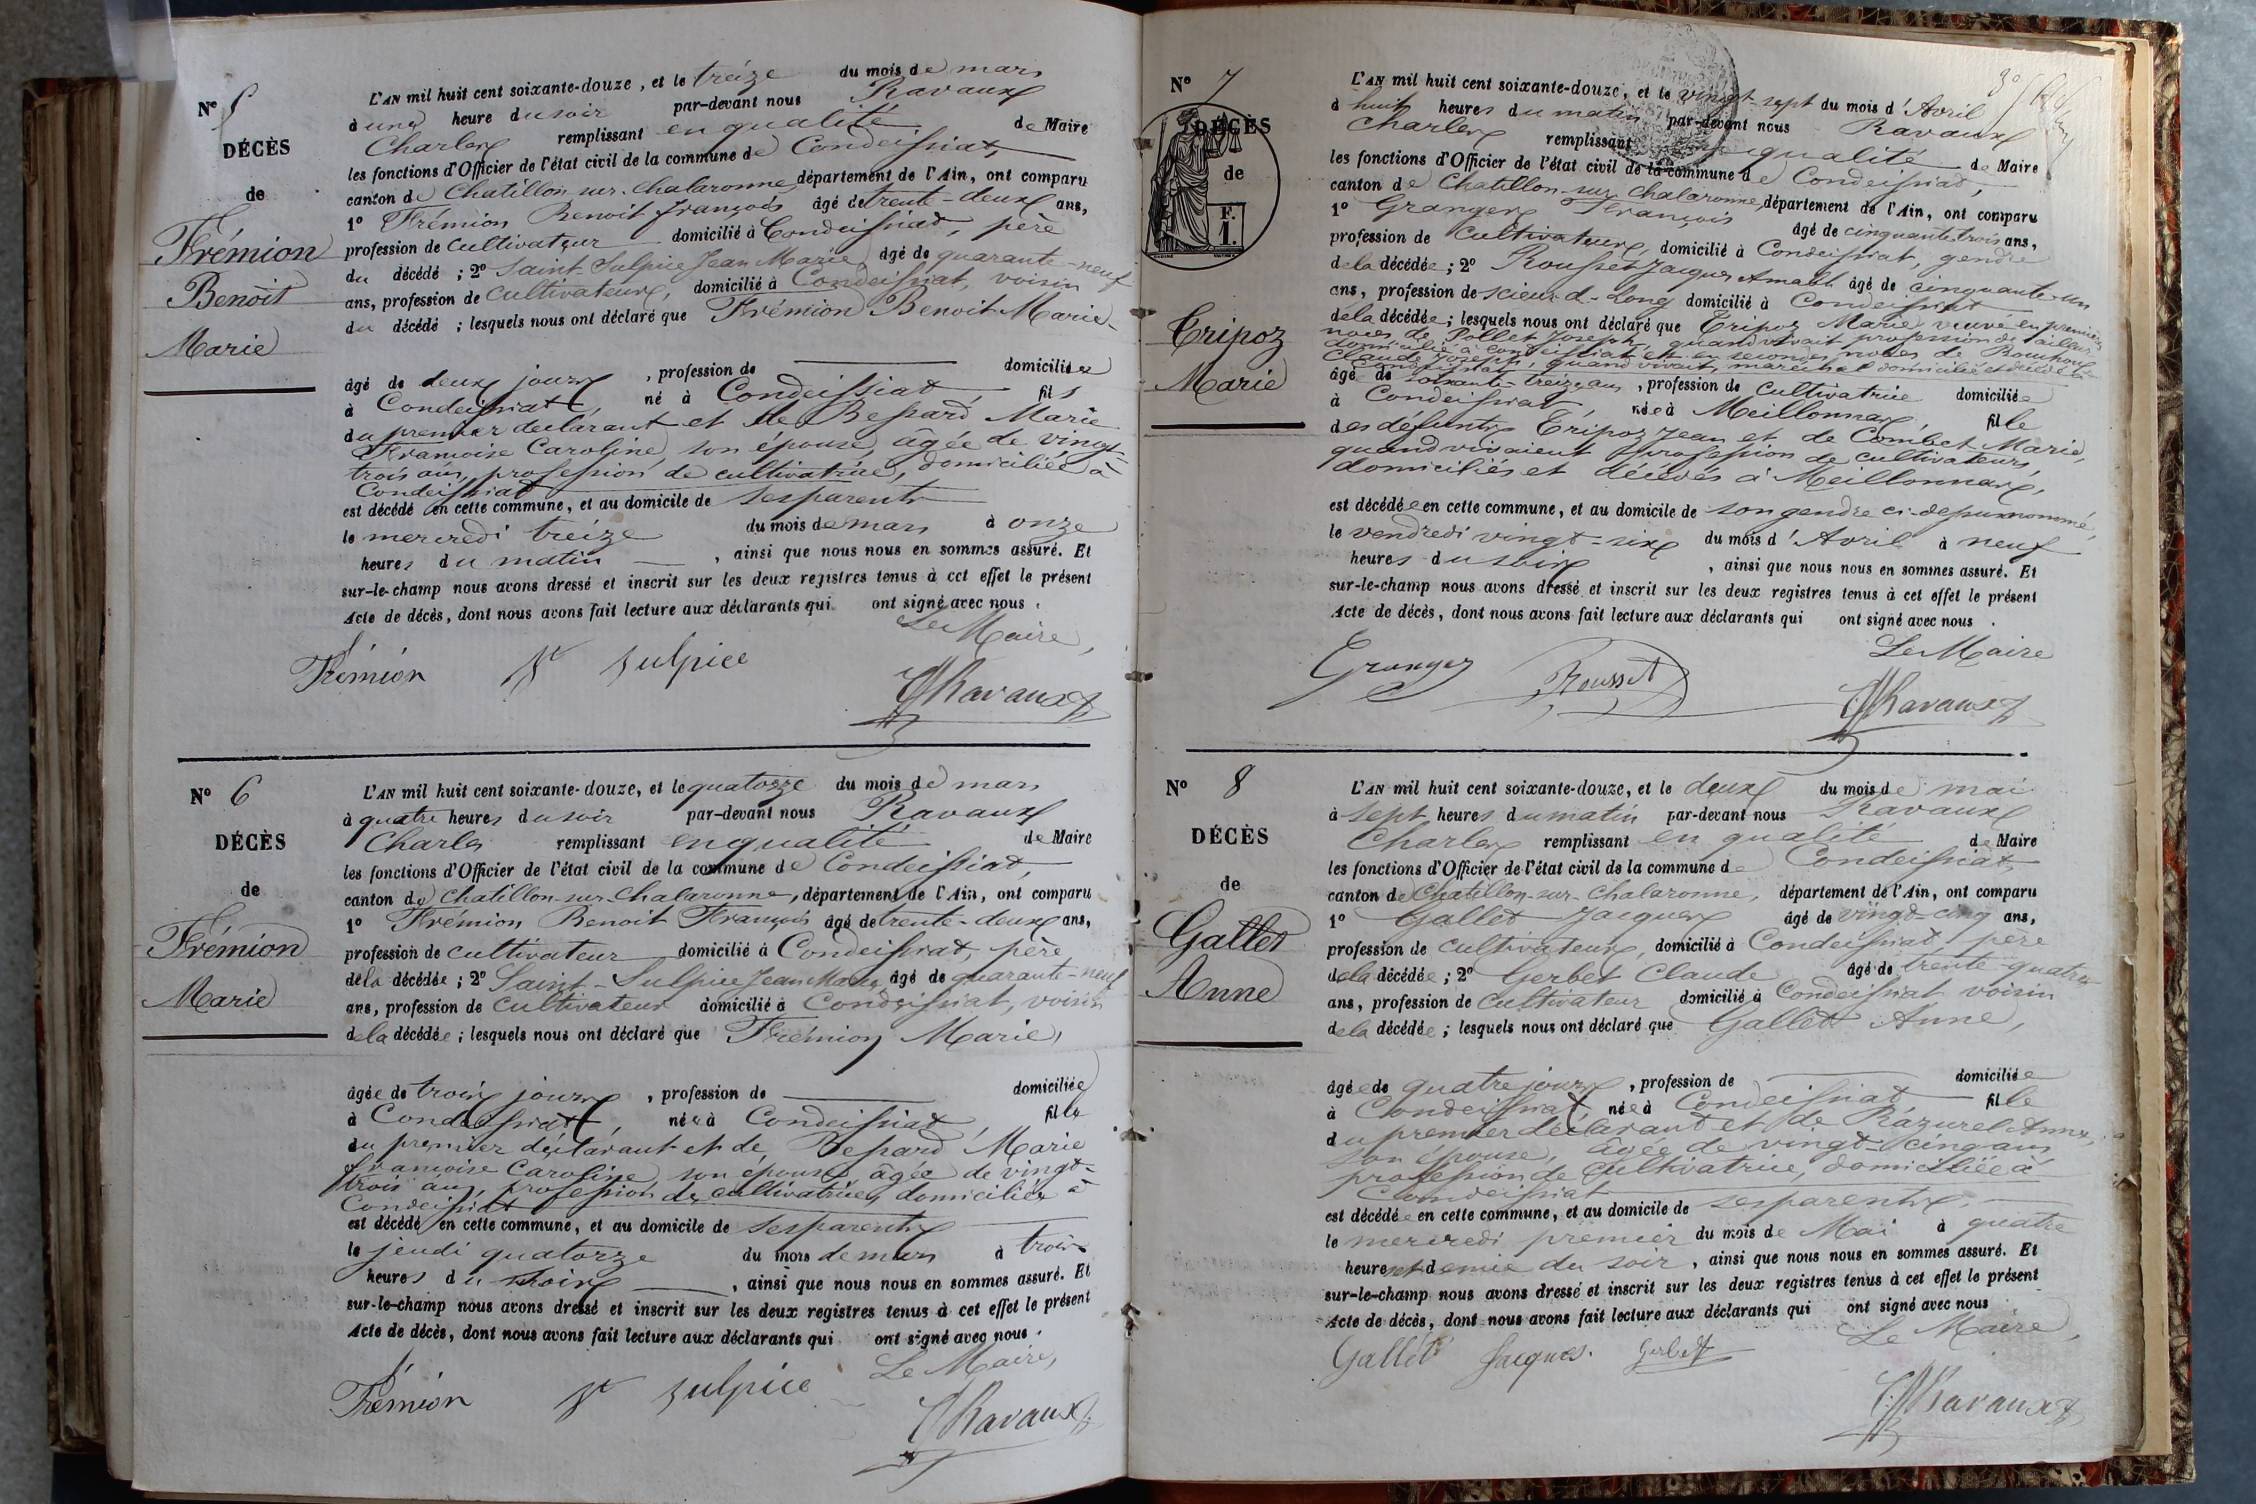 N° 5
DÉCÈS
de
Frémion
Benoit
Marie
L'AN mil huit cent soixante-douze, et le treize du mois de mars
à une heure du soir par-devant nous Ravaux
Charles remplissant en qualité de Maire
les fonctions d'Officier de l'état civil de la commune de Condeissiat,
canton de Chatillon-sur-Chalaronne, département de l'Ain, ont comparu
1° Frémion Benoit François âgé de trente-deux ans,
profession de cultivateur domicilié à Condeissiat, père
du décédé ; 2° Saint-Sulpice Jean Marie âgé de quarante-neuf
ans, profession de cultivateur, domicilié à Condeissiat, voisin
du décédé ; lesquels nous ont déclaré que Frémion Benoit Marie
âgé de deux jours, profession de domicilié
à Condeissiat, né à Condeissiat fils
du premier déclarant et de Marie
Françoise Caroline, son épouse, âgée de vingt-
trois ans, profession de cultivatrice, domiciliée à
Condeissiat
est décédé en cette commune, et au domicile de ses parents
le mercredi treize du mois de mars à onze
heures du matin, ainsi que nous nous en sommes assuré. Et
sur-le-champ nous avons dressé et inscrit sur les deux registres tenus à cet effet le présent
Acte de décès, dont nous avons fait lecture aux déclarants qui ont signé avec nous.
Le Maire,
Frémion St Sulpice Ravaux
N° 6
DÉCÈS
de
Frémion
Marie
L'AN mil huit cent soixante-douze, et le quatorze du mois de mars
à quatre heures du soir par-devant nous Ravaux
Charles remplissant en qualité de Maire
les fonctions d'Officier de l'état civil de la commune de Condeissiat,
canton de Chatillon-sur-Chalaronne, département de l'Ain, ont comparu
1° Frémion Benoit François âgé de trente-deux ans,
profession de cultivateur domicilié à Condeissiat, père
de la décédée ; 2° Saint-Sulpice Jean Marie âgé de quarante-neuf
ans, profession de cultivateur domicilié à Condeissiat, voisin
de la décédée ; lesquels nous ont déclaré que Frémion Marie,
âgée de trois jours, profession de domiciliée
à Condeissiat, née à Condeissiat, fille
du premier déclarant et de Marie
Françoise Caroline, son épouse, âgée de vingt-
trois ans, profession de cultivatrice, domiciliée à
Condeissiat
est décédé en cette commune, et au domicile de ses parents
le jeudi quatorze du mois de mars à trois
heures du soir, ainsi que nous nous en sommes assuré. Et
sur-le-champ nous avons dressé et inscrit sur les deux registres tenus à cet effet le présent
Acte de décès, dont nous avons fait lecture aux déclarants qui ont signé avec nous.
Le Maire,
Frémion St Sulpice Ravaux
N° 7
DÉCÈS
de
F.
1.
Tripoz
Marie
L'AN mil huit cent soixante-douze, et le vingt-sept du mois d'Avril
à huit heures du matin par-devant nous Ravaux
Charles remplissant qualité de Maire
les fonctions d'Officier de l'état civil de la commune de Condeissiat,
canton de Chatillon-sur-Chalaronne, département de l'Ain, ont comparu
1° Granger François âgé de cinquante trois ans,
profession de cultivateur, domicilié à Condeissiat, gendre
de la décédée ; 2° Rousset Jacques Amable âgé de cinquante-un
ans, profession de scieur de long domicilié à Condeissiat
de la décédée ; lesquels nous ont déclaré que Tripoz Marie veuve en premières
noces de Pollet Joseph, quand vivait profession de tailleur
domicilié à Condeissiat et en secondes noces de
Claude Joseph, quand vivait, maréchal domicilié et décédé à
Condeissiat
âgé de soixante-treize ans, profession de cultivatrice domiciliée
à Condeissiat, née à Meillonnax, fille
des défunts Tripoz Jean et de Combet Marie,
quand vivaient profession de cultivateurs,
domiciliés et décédés à Meillonnax,
est décédée en cette commune, et au domicile de son gendre ci-dessus nommé,
le vendredi vingt-six du mois d'Avril à neuf
heures du soir, ainsi que nous nous en sommes assuré. Et
sur-le-champ nous avons dressé et inscrit sur les deux registres tenus à cet effet le présent
Acte de décès, dont nous avons fait lecture aux déclarants qui ont signé avec nous.
Le Maire
Granger Rousset Ravaux
N° 8
DÉCÈS
de
Gallet
Anne
L'AN mil huit cent soixante-douze, et le deux du mois de mai
à sept heures du matin par-devant nous Ravaux
Charles remplissant en qualité de Maire
les fonctions d'Officier de l'état civil de la commune de Condeissiat
canton de Chatillon-sur-Chalaronne, département de l'Ain, ont comparu
1° Gallet Jacques âgé de vingt-cinq ans,
profession de cultivateur, domicilié à Condeissiat, père
de la décédée ; 2° Gerbet Claude âgé de trente-quatre
ans, profession de cultivateur domicilié à Condeissiat voisin
de la décédée ; lesquels nous ont déclaré que Gallet Anne,
âgée de quatre jours, profession de domiciliée
à Condeissiat, née à Condeissiat fille
du premier déclarant et de Razurel Anne,
son épouse, âgée de vingt-cinq ans,
profession de cultivatrice, domiciliée à
Condeissiat
est décédée en cette commune, et au domicile de ses parents
le mercredi premier du mois de Mai à quatre
heures et demie du soir, ainsi que nous nous en sommes assuré. Et
sur-le-champ nous avons dressé et inscrit sur les deux registres tenus à cet effet le présent
Acte de décès, dont nous avons fait lecture aux déclarants qui ont signé avec nous
Le Maire,
Gallet Jacques. Gerbet Ravaux